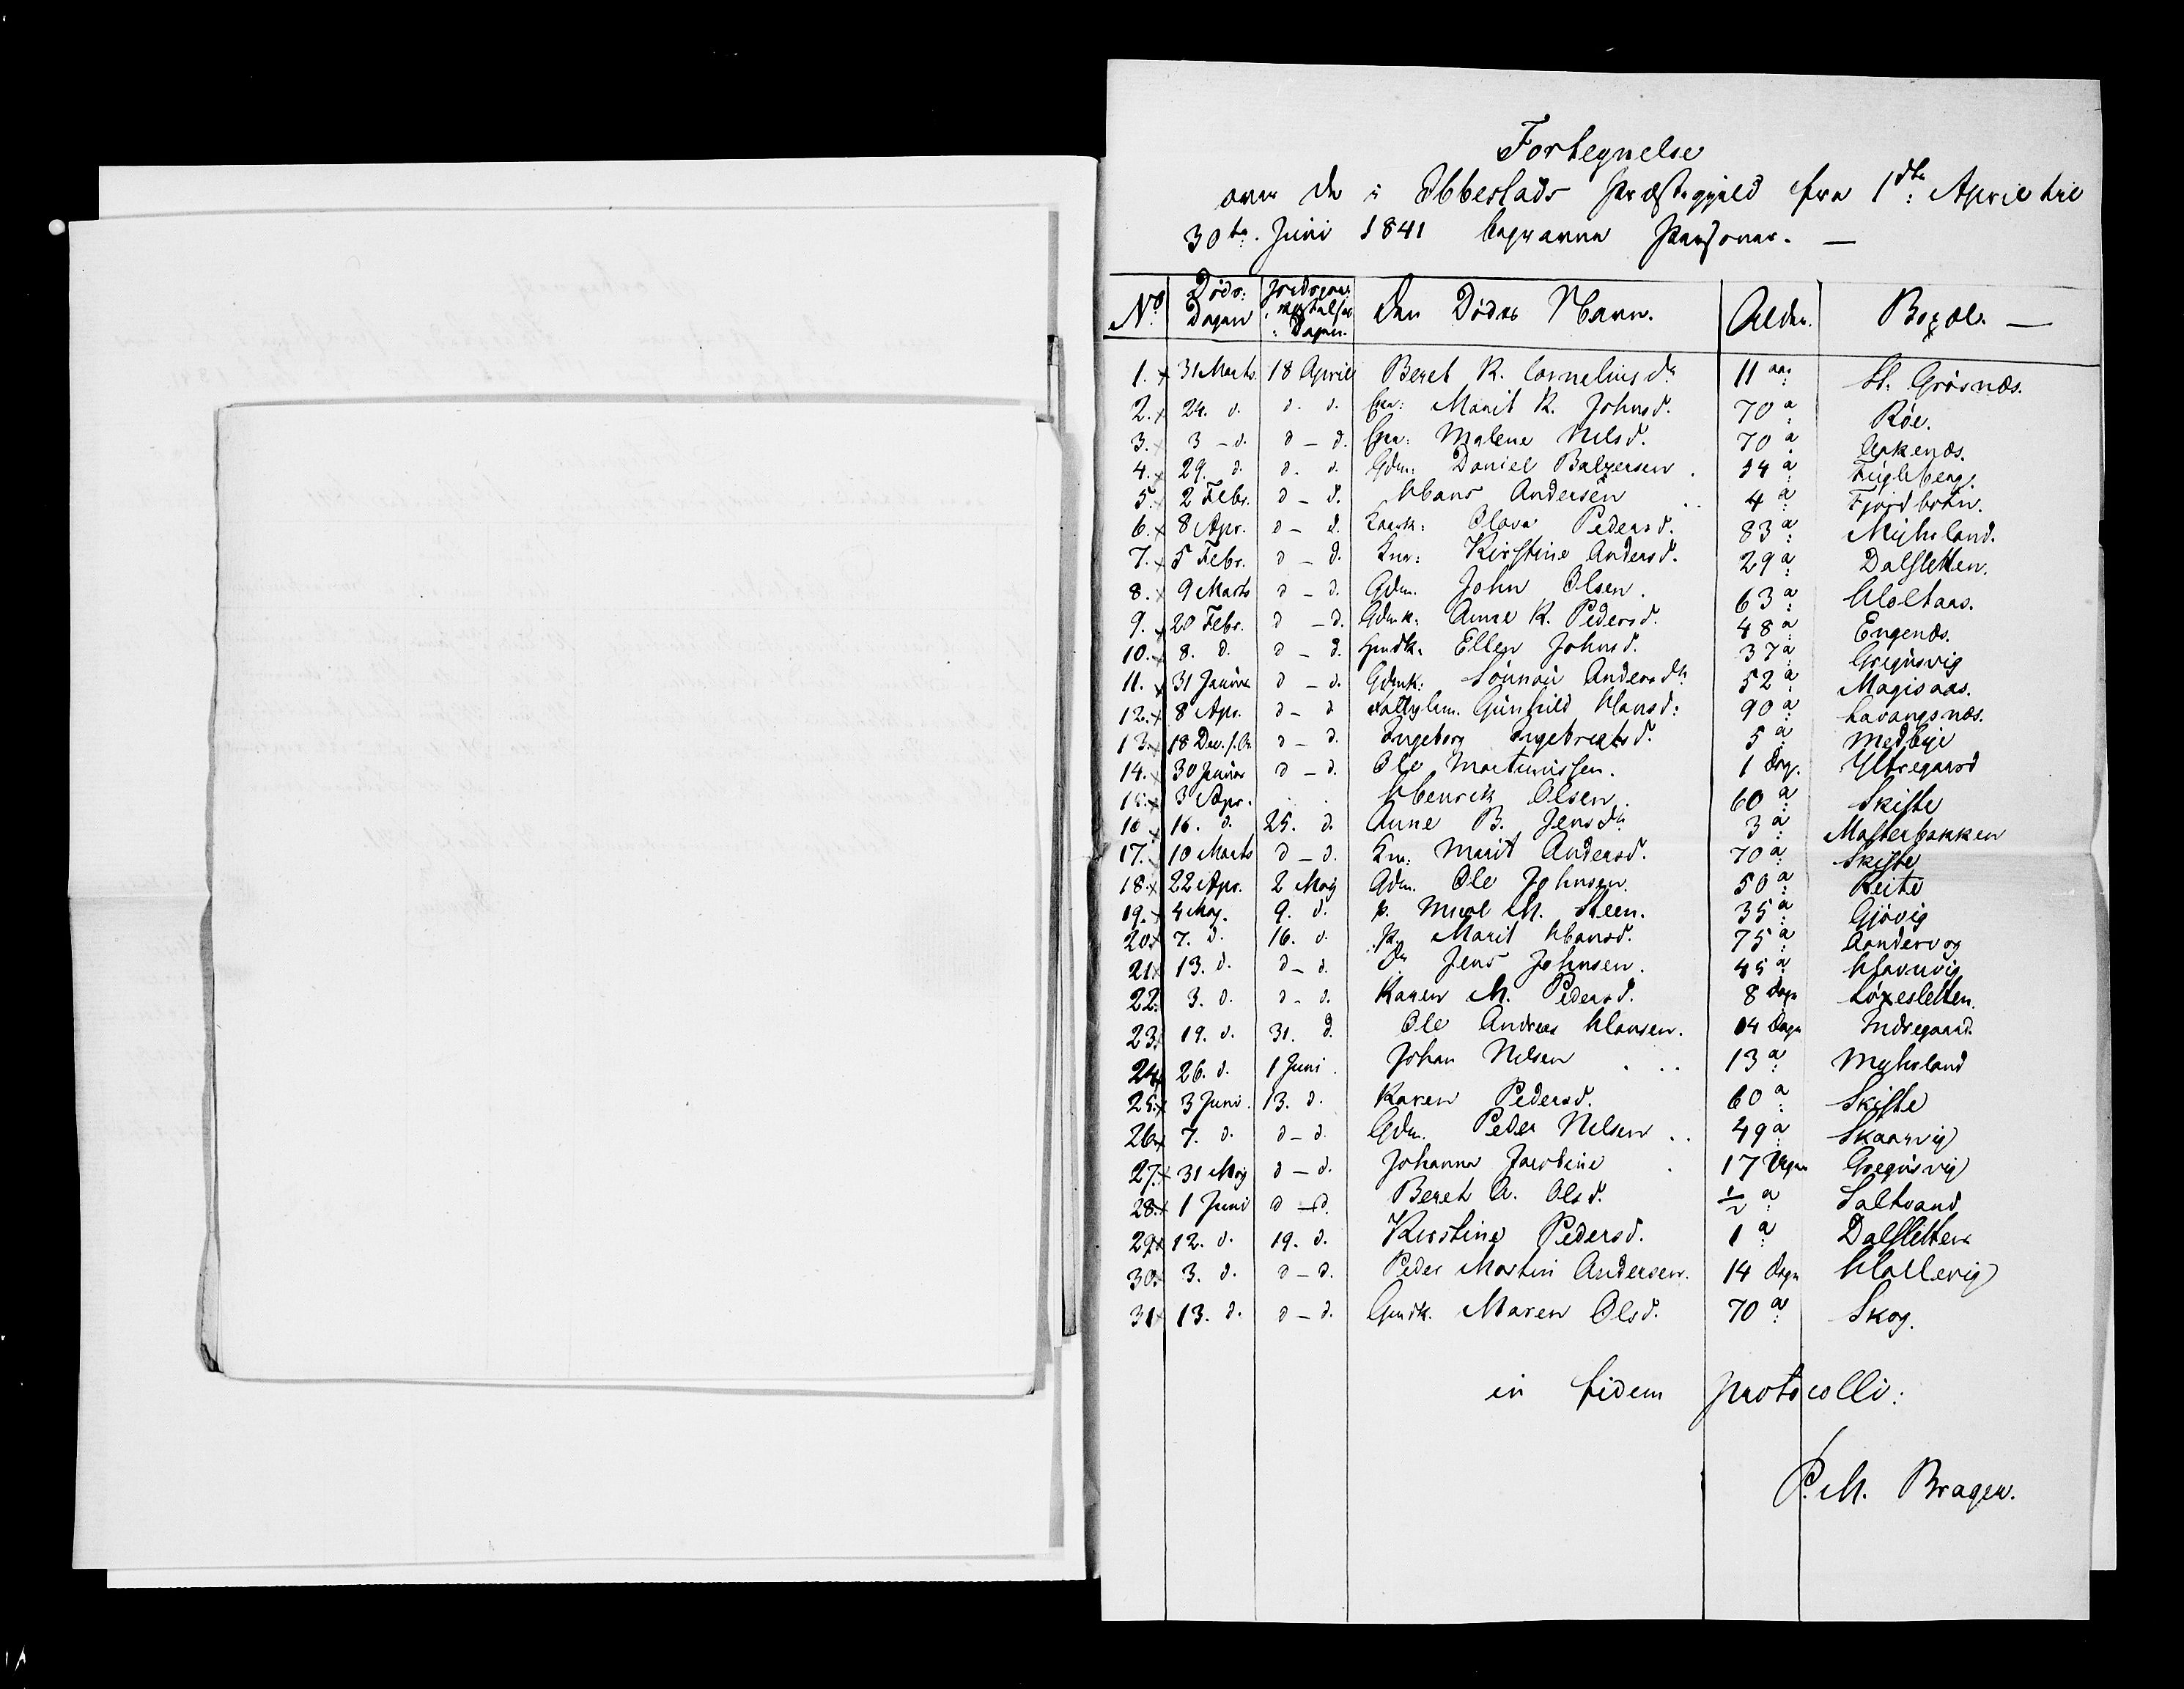 Fortegnelse
over de i Ibbestads Præstegjeld fra 1ste April til
30te Juni 1841 begravne Personer. —
No Døds: Dagen Jordspaakastelses Dagen Den Dødes Navn. Alder. Bopæl. —
1. 31 Marts 18 April Beret K. Corneliusdr 11 aar St. Grøsnæs.
2. 24. d. d. d. Marit K. Johnsd. 70 a Røe.
3. 3 – d. d – d. Malene Nilsd. 70 a Aakenæs.
4. 29. d. d. d. Gdm: Daniel Balzersen 54 a Fugleberg.
5. 2 Febr. d – d. Hans Andersen 4 a Fjordbotn.
6. 8 Apr. d – d. Olava Pedersd. 83 a Myhrland.
7. 5 Febr. d – d. Kirstine Andersd. 29 a Dalsletten.
8. 9 Marts d – d. Gdm. John Olsen. 63 a Holtaas.
9. 20 Febr. d – d. Gdmk: Anne K. Pedersd. 48 a Engenæs.
10. 8. d. d – d. Ellen Johnsd. 37 a Gregusvig
11. 31 Januar d – d. Gdmk: Sønnøv Andersdr 52 a Magisaas.
12. 8 Apr. d – d Fattiglem. Gunhild Hansd: 90 a Lavangsnæs.
13. 18 Dec. f. A. d – d. Ingeborg Ingebregtsd. 5 a Medbye
14. 30 Januar d – d. Ole Martinussen. 1 Dag. Ytregaard
15. 3 Apr. Henrik Olsen. 60 a Skifte
16 16. d. 25. d. Anne B. Jensdr 3 a Masterbakken
17. 10 Marts d – d. Marit Andersd. 70 a Skifte
18. 22 Apr. 2 Maj Gdm. Ole Johnsen. 50 a Reite
19. 4 Maj. 9. d. M. Steen. 35 a Gjøvig
20. 7. d. 16. d. K. Marit Hansd. 75 a Aandervog
21. 13. d. d – d. Jens Johnsen. 45 a Havnvig
22. 3. d. d – d. Karen M. Pedersd. 8 Dage Løxesletten.
23. 19. d. 31. d. Ole Andreas Hansen. 14 Dage Indregaard.
24. 26. d. 1 Juni. Johan Nilsen 13 a Myhrland
25. 3 Juni. 13. d. Karen Pedersd. 60 a Skifte
26. 7. d. d – d. Gdm. Peder Nilsen 49 a Skaarvig
27. 31 Maj d – d. Johanna Jacobine 17 Uger Gregusvig
28. 1 Juni d – d. Beret A. Olsd. ½ a Saltvand
29. 12. d. 19. d. Kirstine Pedersd. 1 a Dalsletten
30. 3. d. d – d. Peder Martin Andersen. 14 Dage Hallevig
31. 13. d. d – d. Gmdk. Maren Olsd. 70 a Skog.
in fidem protocolli:
P. M. Bragen.